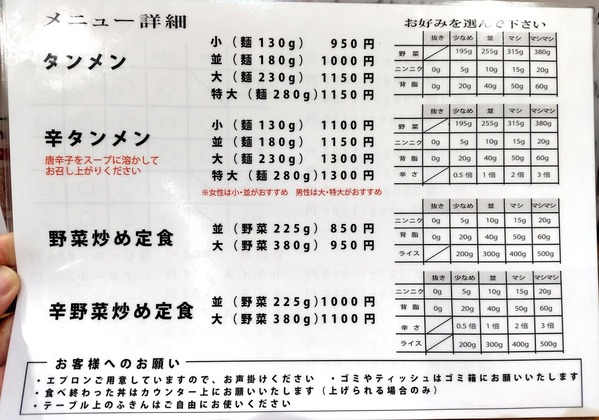 メニュー詳細
お好みを選んで下さい
タンメン
小（麺130g） 950円
並（麺180g）1000円
大（麺230g）1150円
特大（麺280g）1150円
抜き 少なめ 並 マシ マシマシ
野菜 195g 255g 315g 380g
ニンニク 0g 5g 10g 15g 20g
背脂 0g 20g 40g 50g 60g
辛タンメン
唐辛子をスープに溶かして
お召し上がりください
小（麺130g）1100円
並（麺180g）1150円
大（麺230g）1300円
特大（麺280g）1300円
※女性は小・並がおすすめ 男性は大・特大がおすすめ
抜き 少なめ 並 マシ マシマシ
野菜 195g 255g 315g 380g
ニンニク 0g 5g 10g 15g 20g
背脂 0g 20g 40g 50g 60g
辛さ 0.5倍 1倍 2倍 3倍
野菜炒め定食
並（野菜225g）850円
大（野菜380g）950円
抜き 少なめ 並 マシ マシマシ
ニンニク 0g 5g 10g 15g 20g
背脂 0g 20g 40g 50g 60g
ライス 200g 300g 400g 500g
辛野菜炒め定食
並（野菜225g）1000円
大（野菜380g）1100円
抜き 少なめ 並 マシ マシマシ
ニンニク 0g 5g 10g 15g 20g
背脂 0g 20g 40g 50g 60g
辛さ 0.5倍 1倍 2倍 3倍
ライス 200g 300g 400g 500g
お客様へのお願い
・エプロンご用意していますので、お声掛けください ・ゴミやティッシュはゴミ箱にお願いいたします
・食べ終わった丼はカウンター上にお願いいたします（上げられる場合のみ）
・テーブル上のふきんはご自由にお使いください